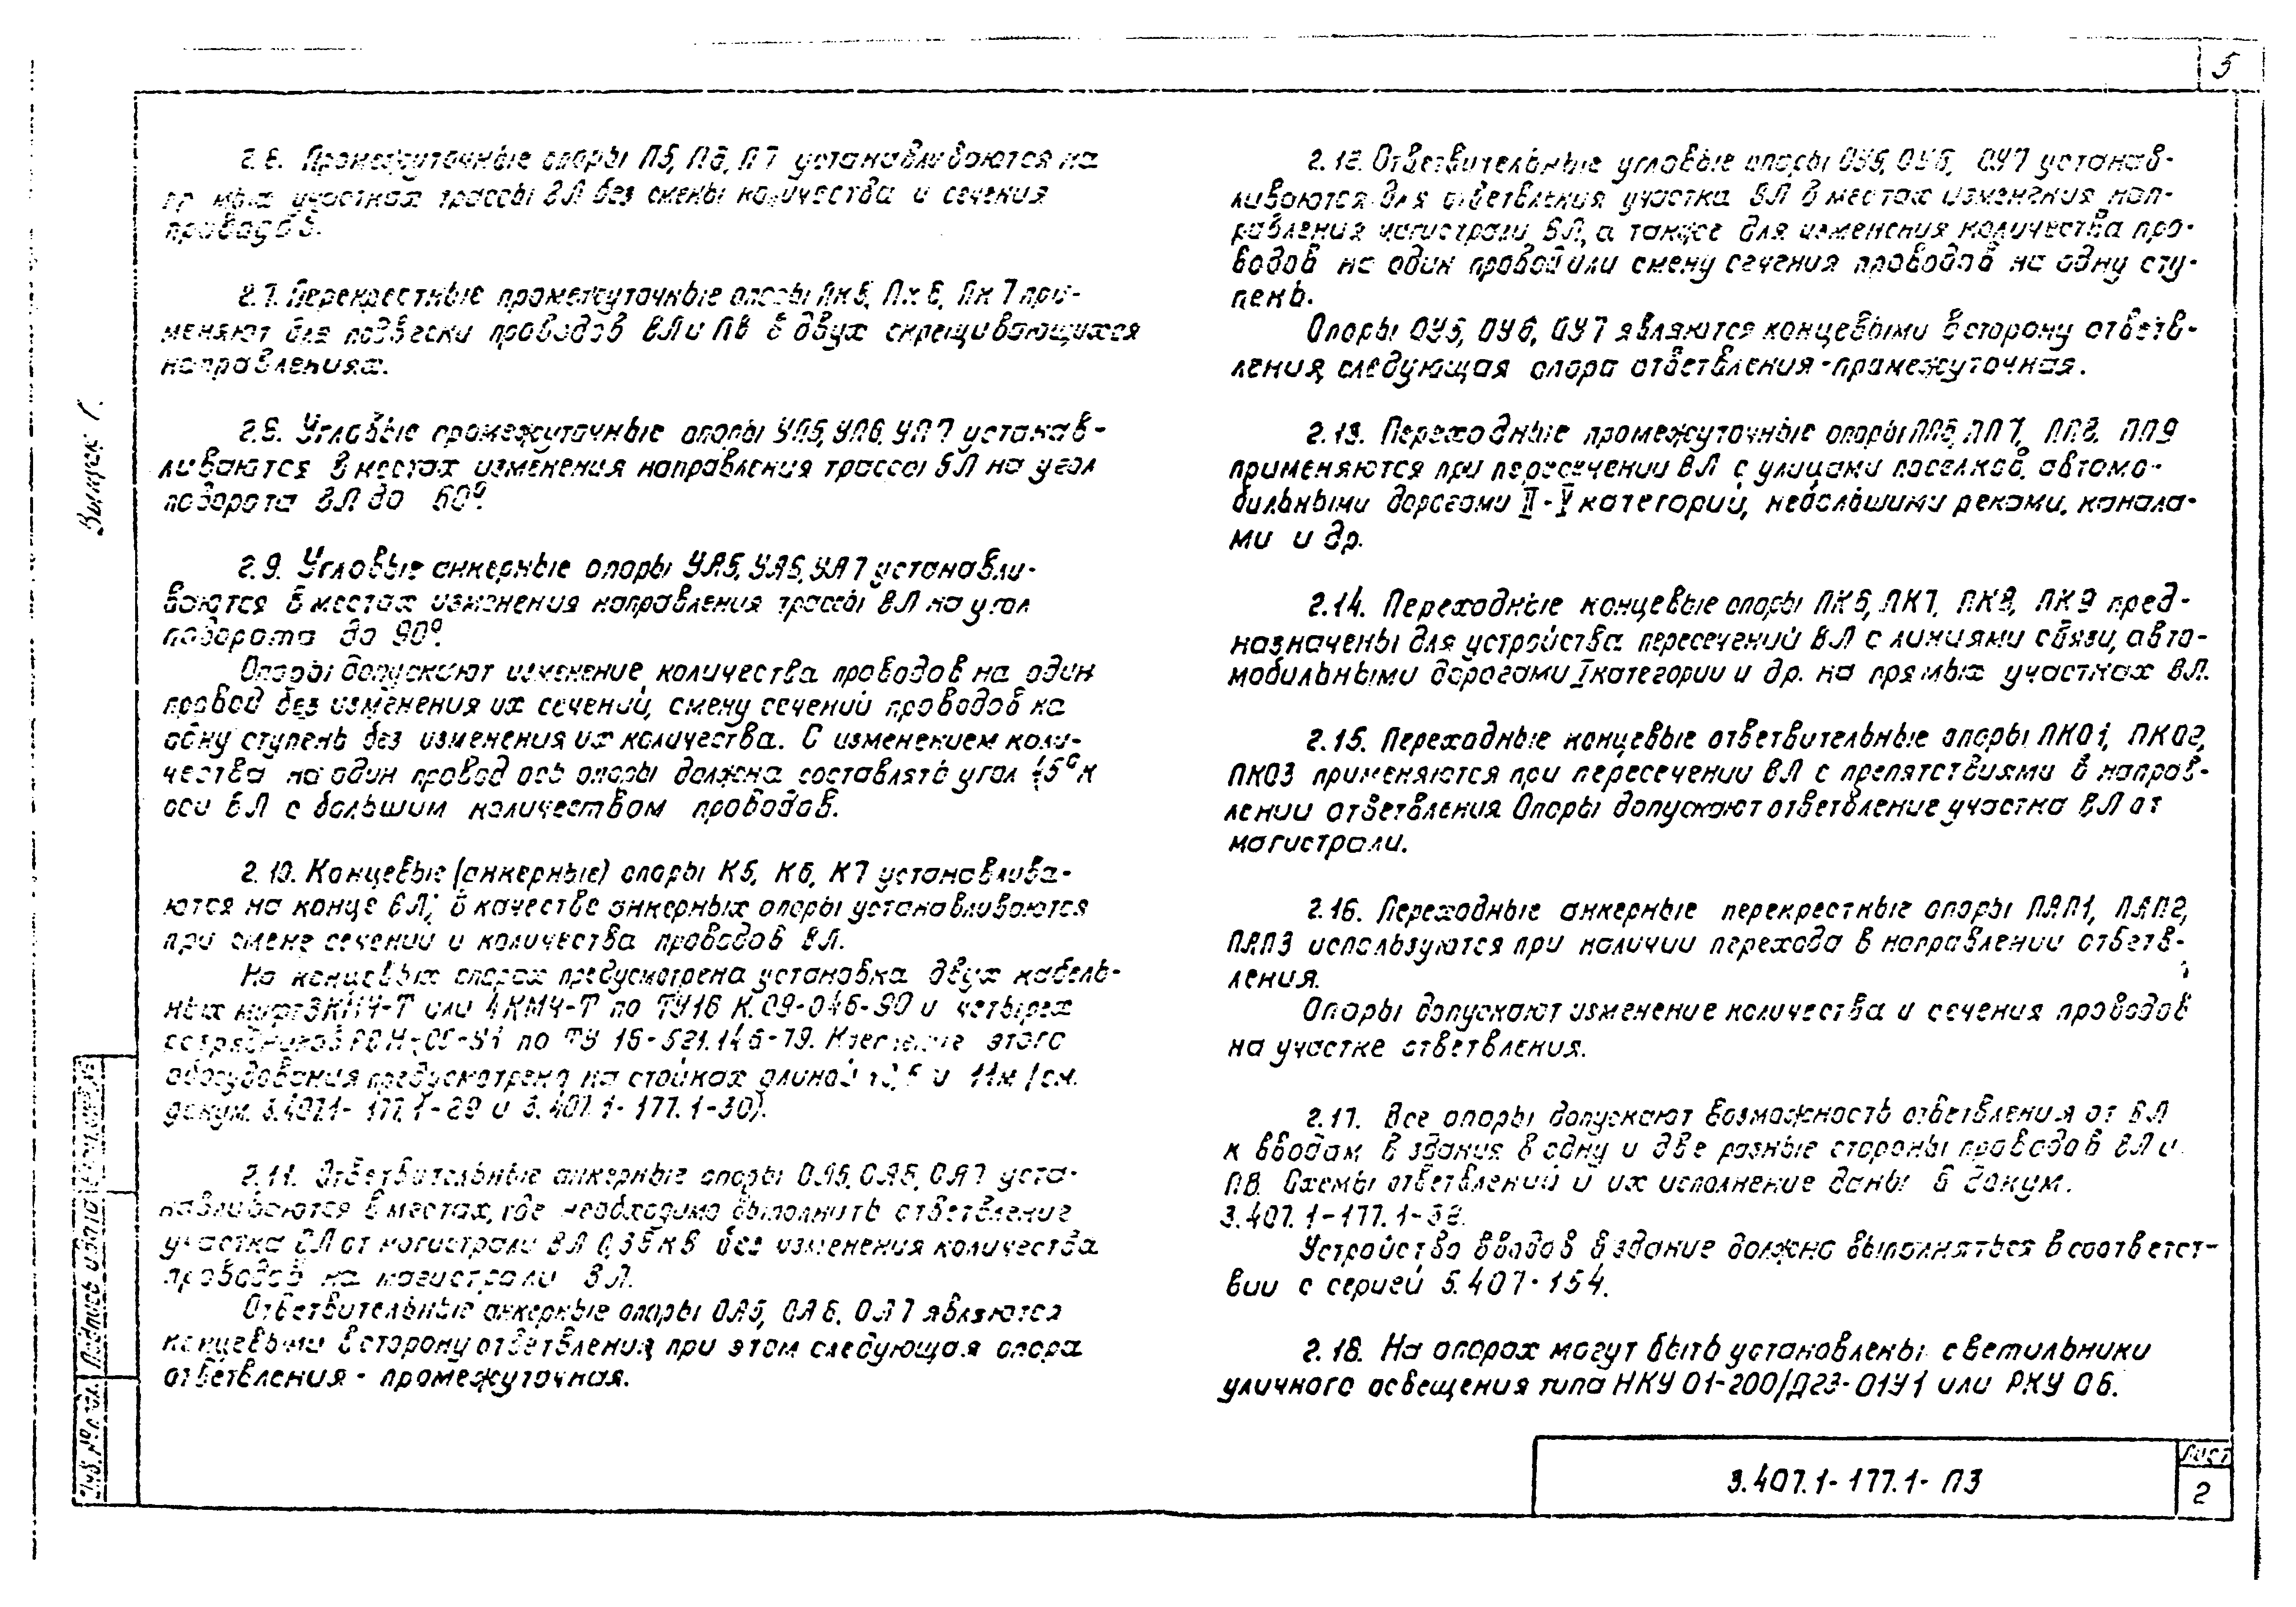 5
2.6. Промежуточные опоры П5, П6, П7 устанавливаются на
участках трассы ВЛ без смены количества и сечения
проводов.
2.7. Перекрестные промежуточные опоры Пк 6, Пк 7 при-
меняют для подвески проводов ВЛ и ПВ в двух скрещивающихся
направлениях.
2.8. Угловые промежуточные опоры УП5, УП6, УП7 устанав-
ливаются в местах изменения направления трассы ВЛ на угол
поворота ВЛ до 60°.
2.9. Угловые анкерные опоры УА5, УА6, УА7 устанавли-
ваются в местах изменения направления трассы ВЛ на угол
поворота до 90°.
Опоры допускают изменение количества проводов на один
провод без изменения их сечений, смену сечений проводов на
одну ступень без изменения их количества. С изменением коли-
чества на один провод ось опоры должна составлять угол 45° к
оси ВЛ с большим количеством проводов.
2.10. Концевые (анкерные) опоры К5, К6, К7 устанавлива-
ются на конце ВЛ; в качестве анкерных опоры устанавливаются
при смене сечений и количества проводов ВЛ.
На концевых опорах предусмотрена установка двух кабель-
ных муфт 3КМЧ-Т или 4КМЧ-Т по ТУ16 К.09-046-90 и четырех
по ТУ 16-521.146-79. Крепление этого
оборудования предусмотрено на стойках длиной и 11м (см.
докум. 3.407.1-177.1-29 и 3.407.1-177.1-30).
2.11. Ответвительные анкерные опоры ОА5, ОА6, ОА7 уста-
навливаются в местах, где необходимо выполнить ответвление
участка ВЛ от магистрали ВЛ 0,38 кВ без изменения количества
проводов на магистрали ВЛ.
Ответвительные анкерные опоры ОА5, ОА6, ОА7 являются
концевыми в сторону ответвления, при этом следующая опора
ответвления - промежуточная.
2.12. Ответвительные угловые опоры ОУ5, ОУ6, ОУ7 устанав-
ливаются для ответвления участка ВЛ в местах изменения нап-
равления магистрали ВЛ, а также для изменения количества про-
водов на один провод или смену сечения проводов на одну сту-
пень.
Опоры ОУ5, ОУ6, ОУ7 являются концевыми в сторону ответв-
ления, следующая опора ответвления - промежуточная.
2.13. Переходные промежуточные опоры ПП6, ПП7, ПП8, ПП9
применяются при пересечении ВЛ с улицами поселков, автомо-
бильными дорогами II-V категорий, небольшими реками, канала-
ми и др.
2.14. Переходные концевые опоры ПК6, ПК7, ПК8, ПК9 пред-
назначены для устройства пересечений ВЛ с линиями связи, авто-
мобильными дорогами I категории и др. на прямых участках ВЛ.
2.15. Переходные концевые ответвительные опоры ПКО1, ПКО2,
ПКО3 применяются при пересечении ВЛ с препятствиями в направ-
лении ответвления. Опоры допускают ответвление участка ВЛ от
магистрали.
2.16. Переходные анкерные перекрестные опоры ПАП1, ПАП2,
ПАП3 используются при наличии перехода в направлении ответв-
ления.
Опоры допускают изменение количества и сечения проводов
на участке ответвления.
2.17. Все опоры допускают возможность ответвления от ВЛ
к вводам в здания в одну и две разные стороны проводов ВЛ и
ПВ. Схемы ответвлений и их исполнение даны в докум.
3.407.1-177.1-38.
Устройство вводов в здание должно выполняться в соответст-
вии с серией 5.407-154.
2.18. На опорах могут быть установлены светильники
уличного освещения типа НКУ 01-200/Д23-01У1 или РКУ 06.
Выпуск 1.
Подпись и дата
Инв. № подл.
3.407.1-177.1-ПЗ
Лист
2